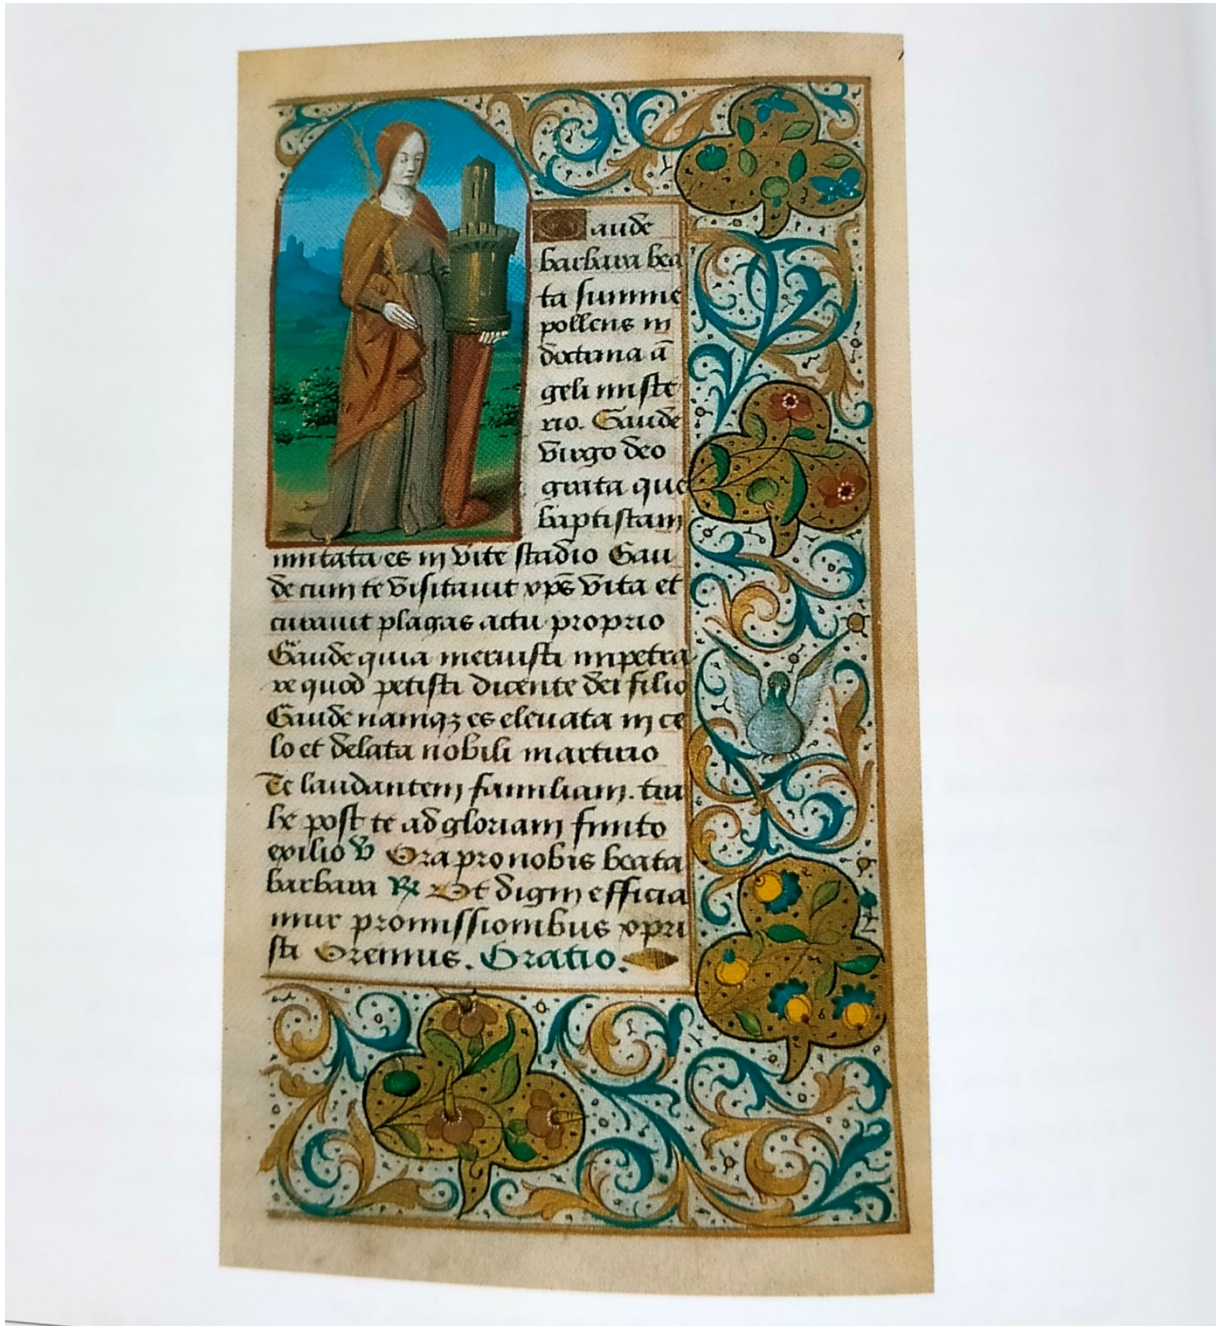 Gaude
barbara bea
ta summe
pollens in
doctrina ā
geli miste
rio. Gaude
virgo deo
grata que
baptistam
imitata es in vite stadio Gau
de cum te visitavit xp̄s vita et
curavit plagas actu proprio
Gaude quia meruisti impetra
re quod petisti dicente dei filio
Gaude namqꝫ es elevata in ce
lo et delata nobili marturio
Te laudantem familiam. tra
he post te ad gloriam finito
exilio ℣ Ora pro nobis beata
barbara ℟ Ut digni efficia
mur promissionibus xpri
sti Oremus. Oratio.